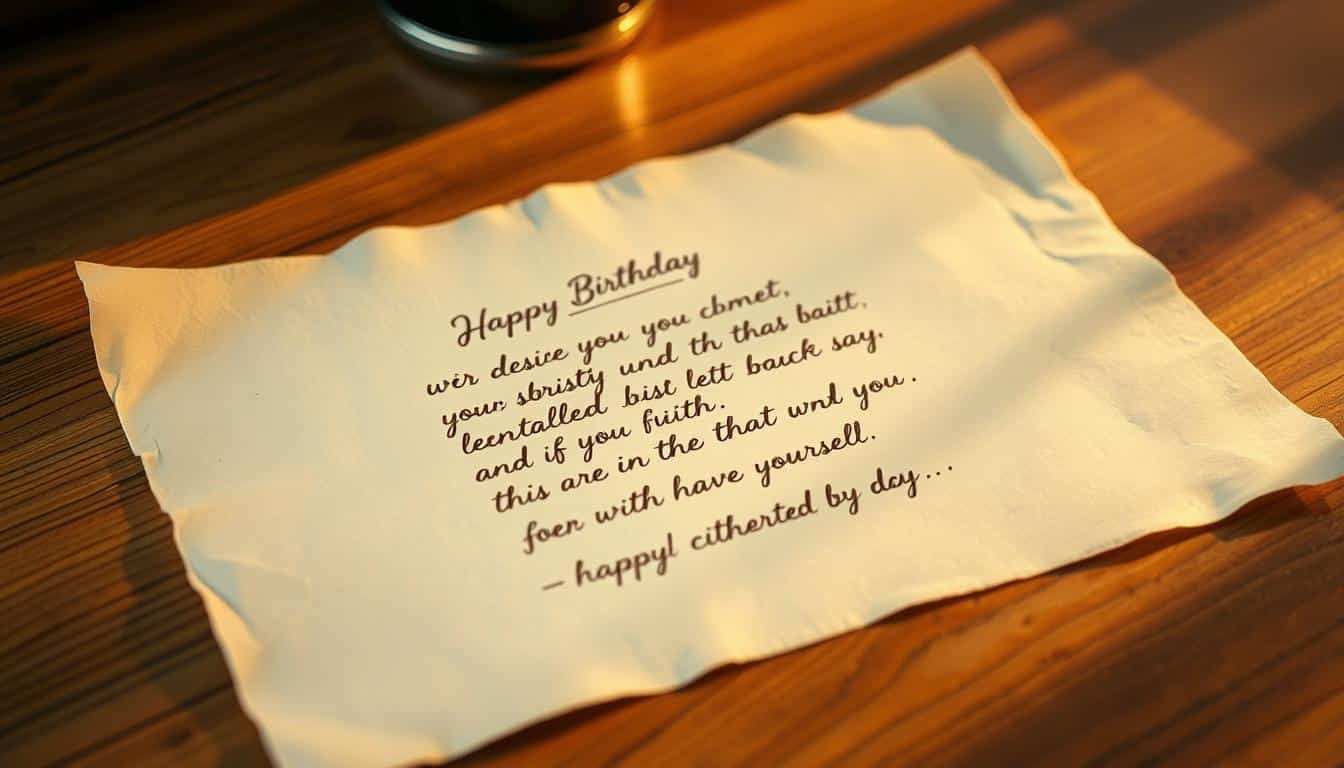 Happy Birthday
wėr desice you you cbmet,
your sbristy und th thas baitt,
leentalled bist lett bauck say.
and if you fuith.
this are in the that wnd you.
foen with have yoursell.
– happyl citherted by day...